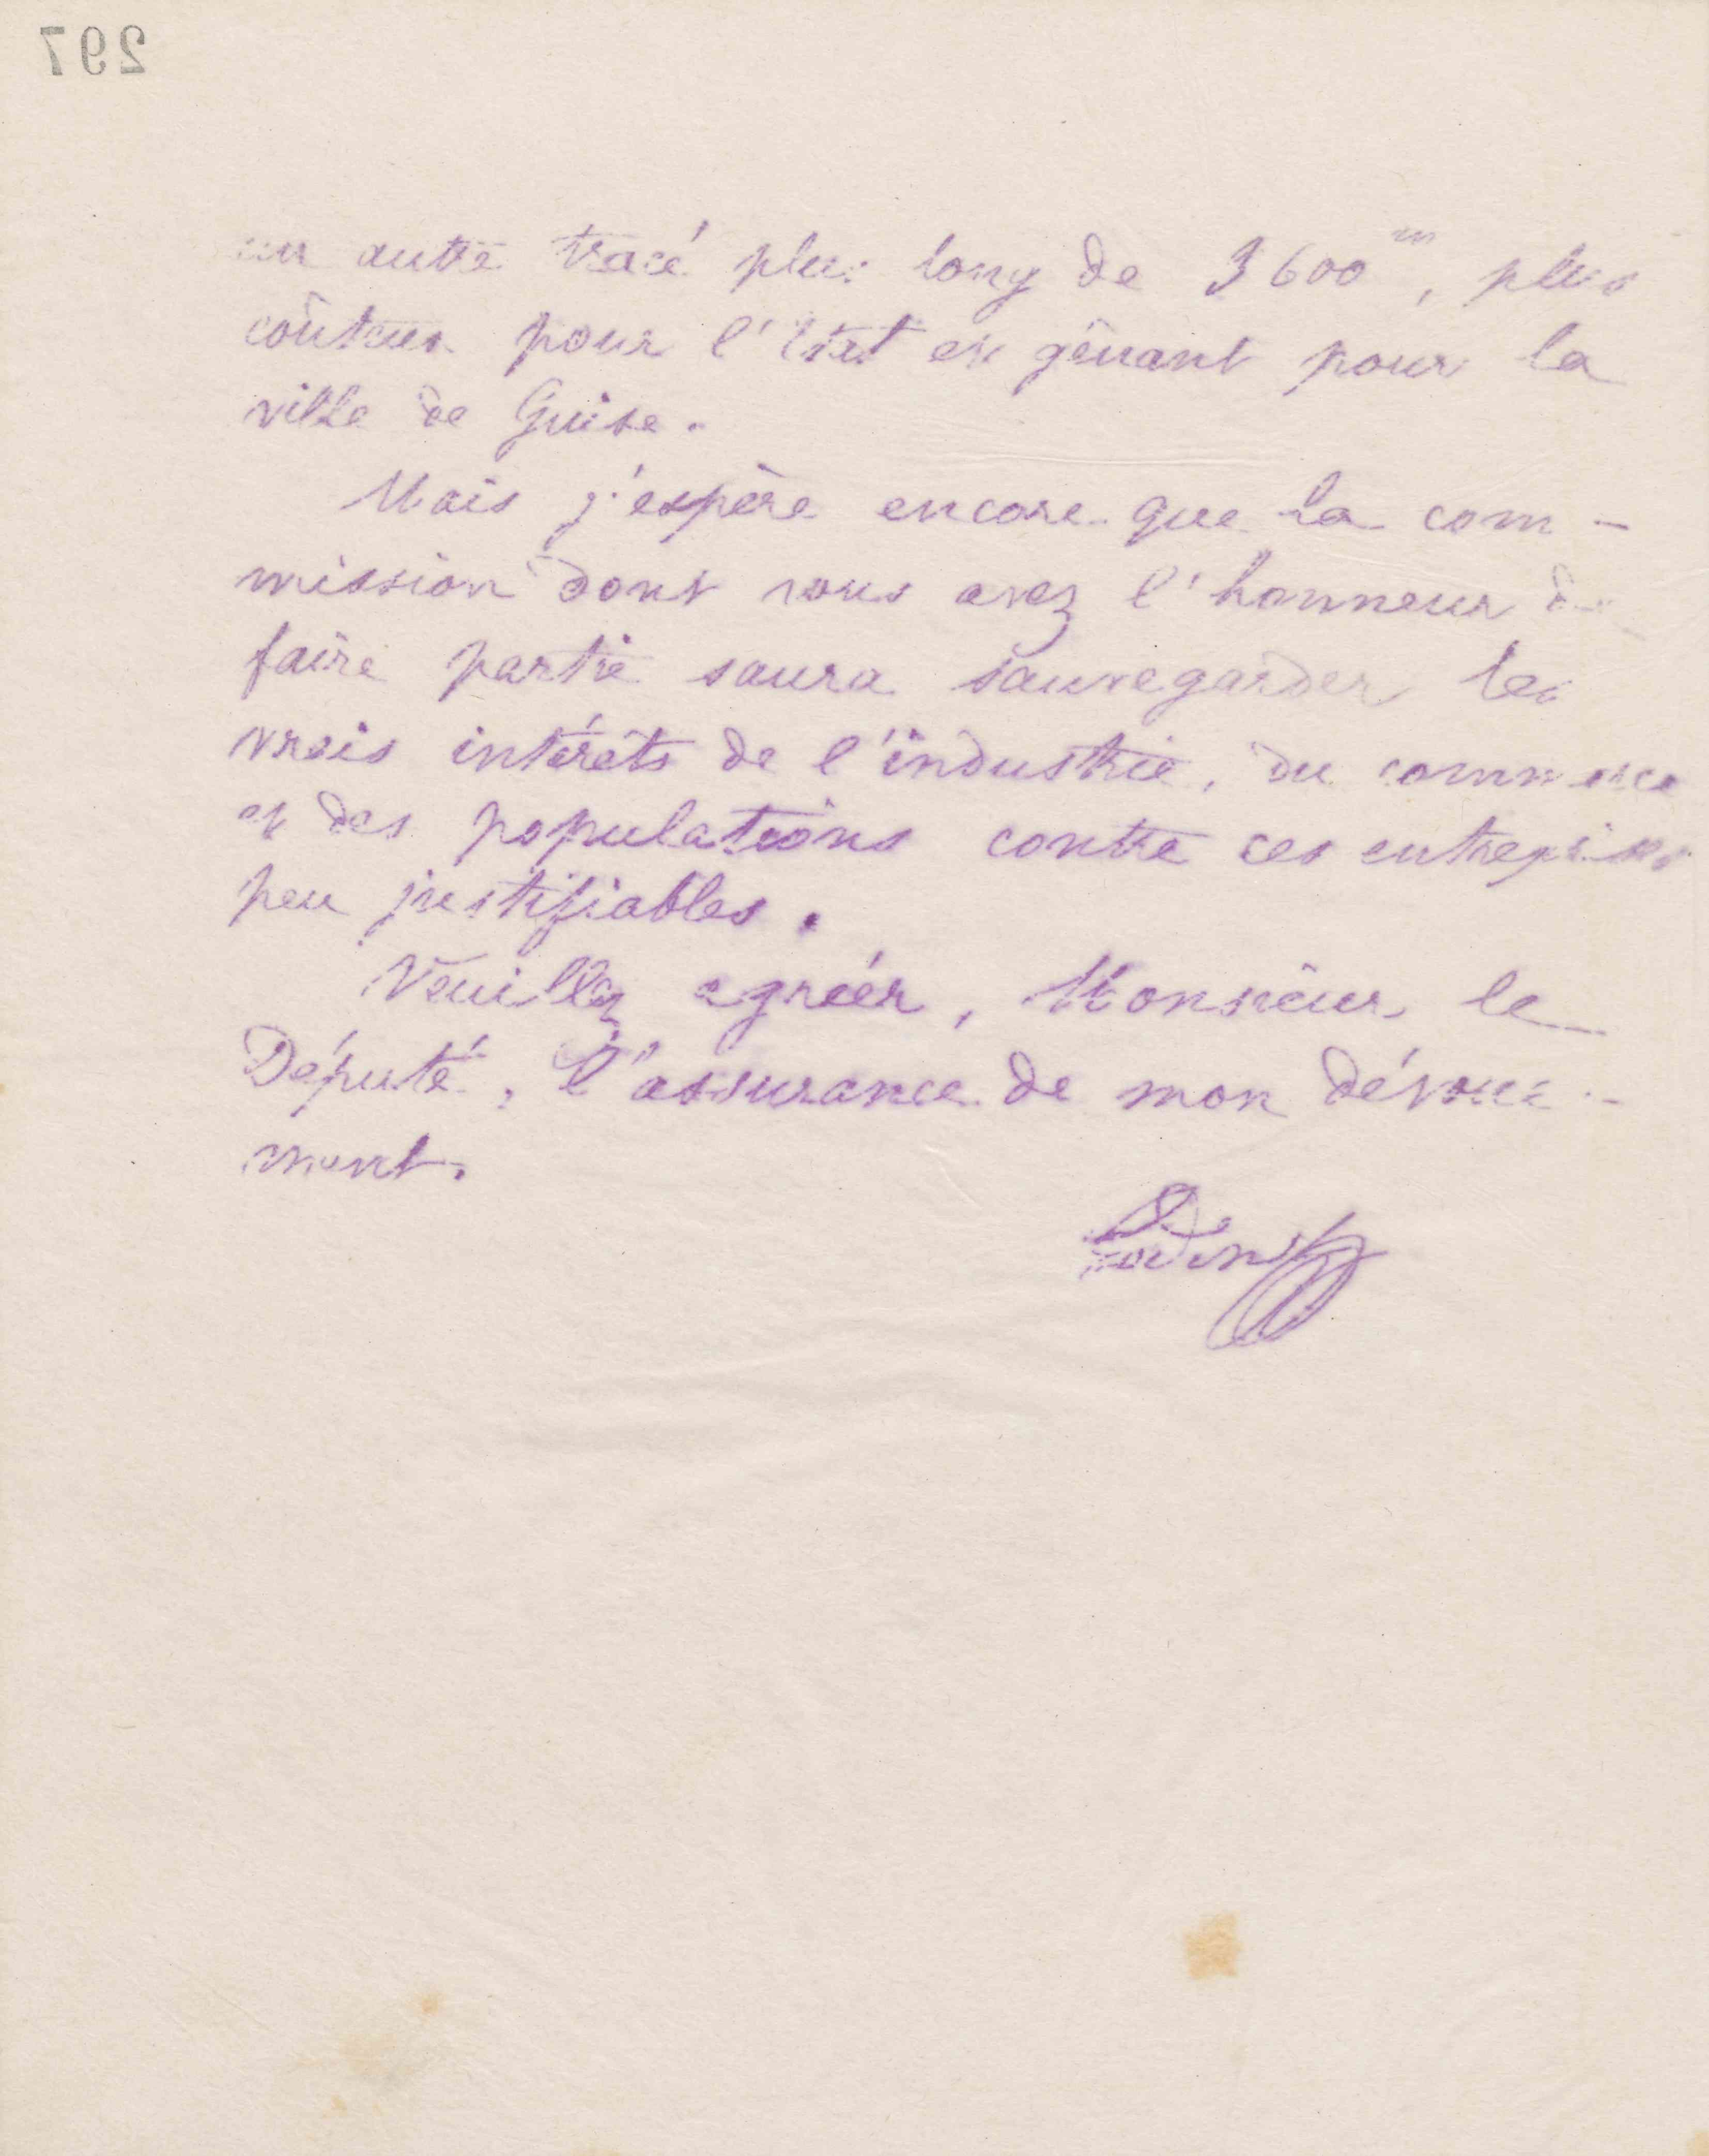 297
un autre tracé plus long de 3600m, plus
coûteux pour l'État et gênant pour la
ville de Guise.
Mais j'espère encore que la com-
mission dont vous avez l'honneur de
faire partie saura sauvegarder les
vrais intérêts de l'industrie, du commerce
et des populations contre ces entreprises
peu justifiables.
Veuillez agréer, Monsieur le
Député, l'assurance de mon dévoue-
ment.
Godin